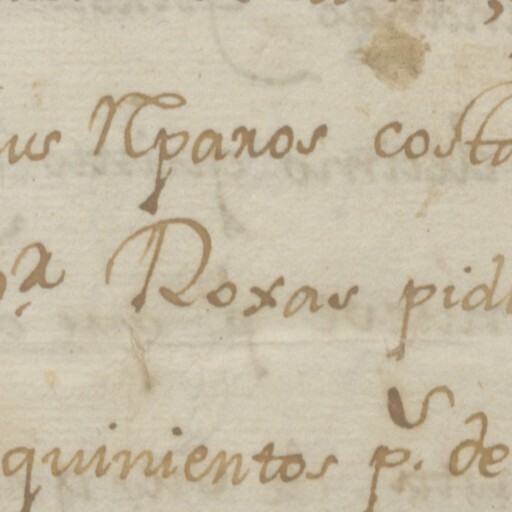 us Rparos costa
ª Roxas pid
quinientos p.s de